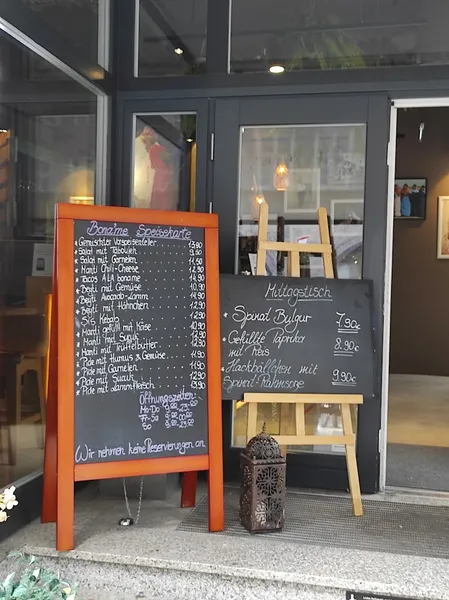 Bona'me Speisekarte
Gemischter Vorspeisenteller 13,90
Salat mit Tabouleh 9,50
Salat mit Garnelen 11,50
Manti Chili-Cheese
Tacos A LA boname
Beyti mit Gemüse
Beyti Avocado-Lamm 14,90
Beyti mit Hähnchen
Sis Kebab
Manti gefüllt mit Käse
Manti mit Sucuk
Manti mit Trüffelbutter
Pide mit Humus & Gemüse
Pide mit Garnelen
Pide mit Sucuk
Pide mit Lammfleisch 13,90
Öffnungszeiten:
Mo-Do
Fr-Sa
So
Wir nehmen keine Reservierungen an
Mittagstisch
Spinat Bulgur 7,90€
Gefüllte Paprika
mit Reis 8,90€
Hackbällchen mit
Spinat-Rahmsoße 9,90€